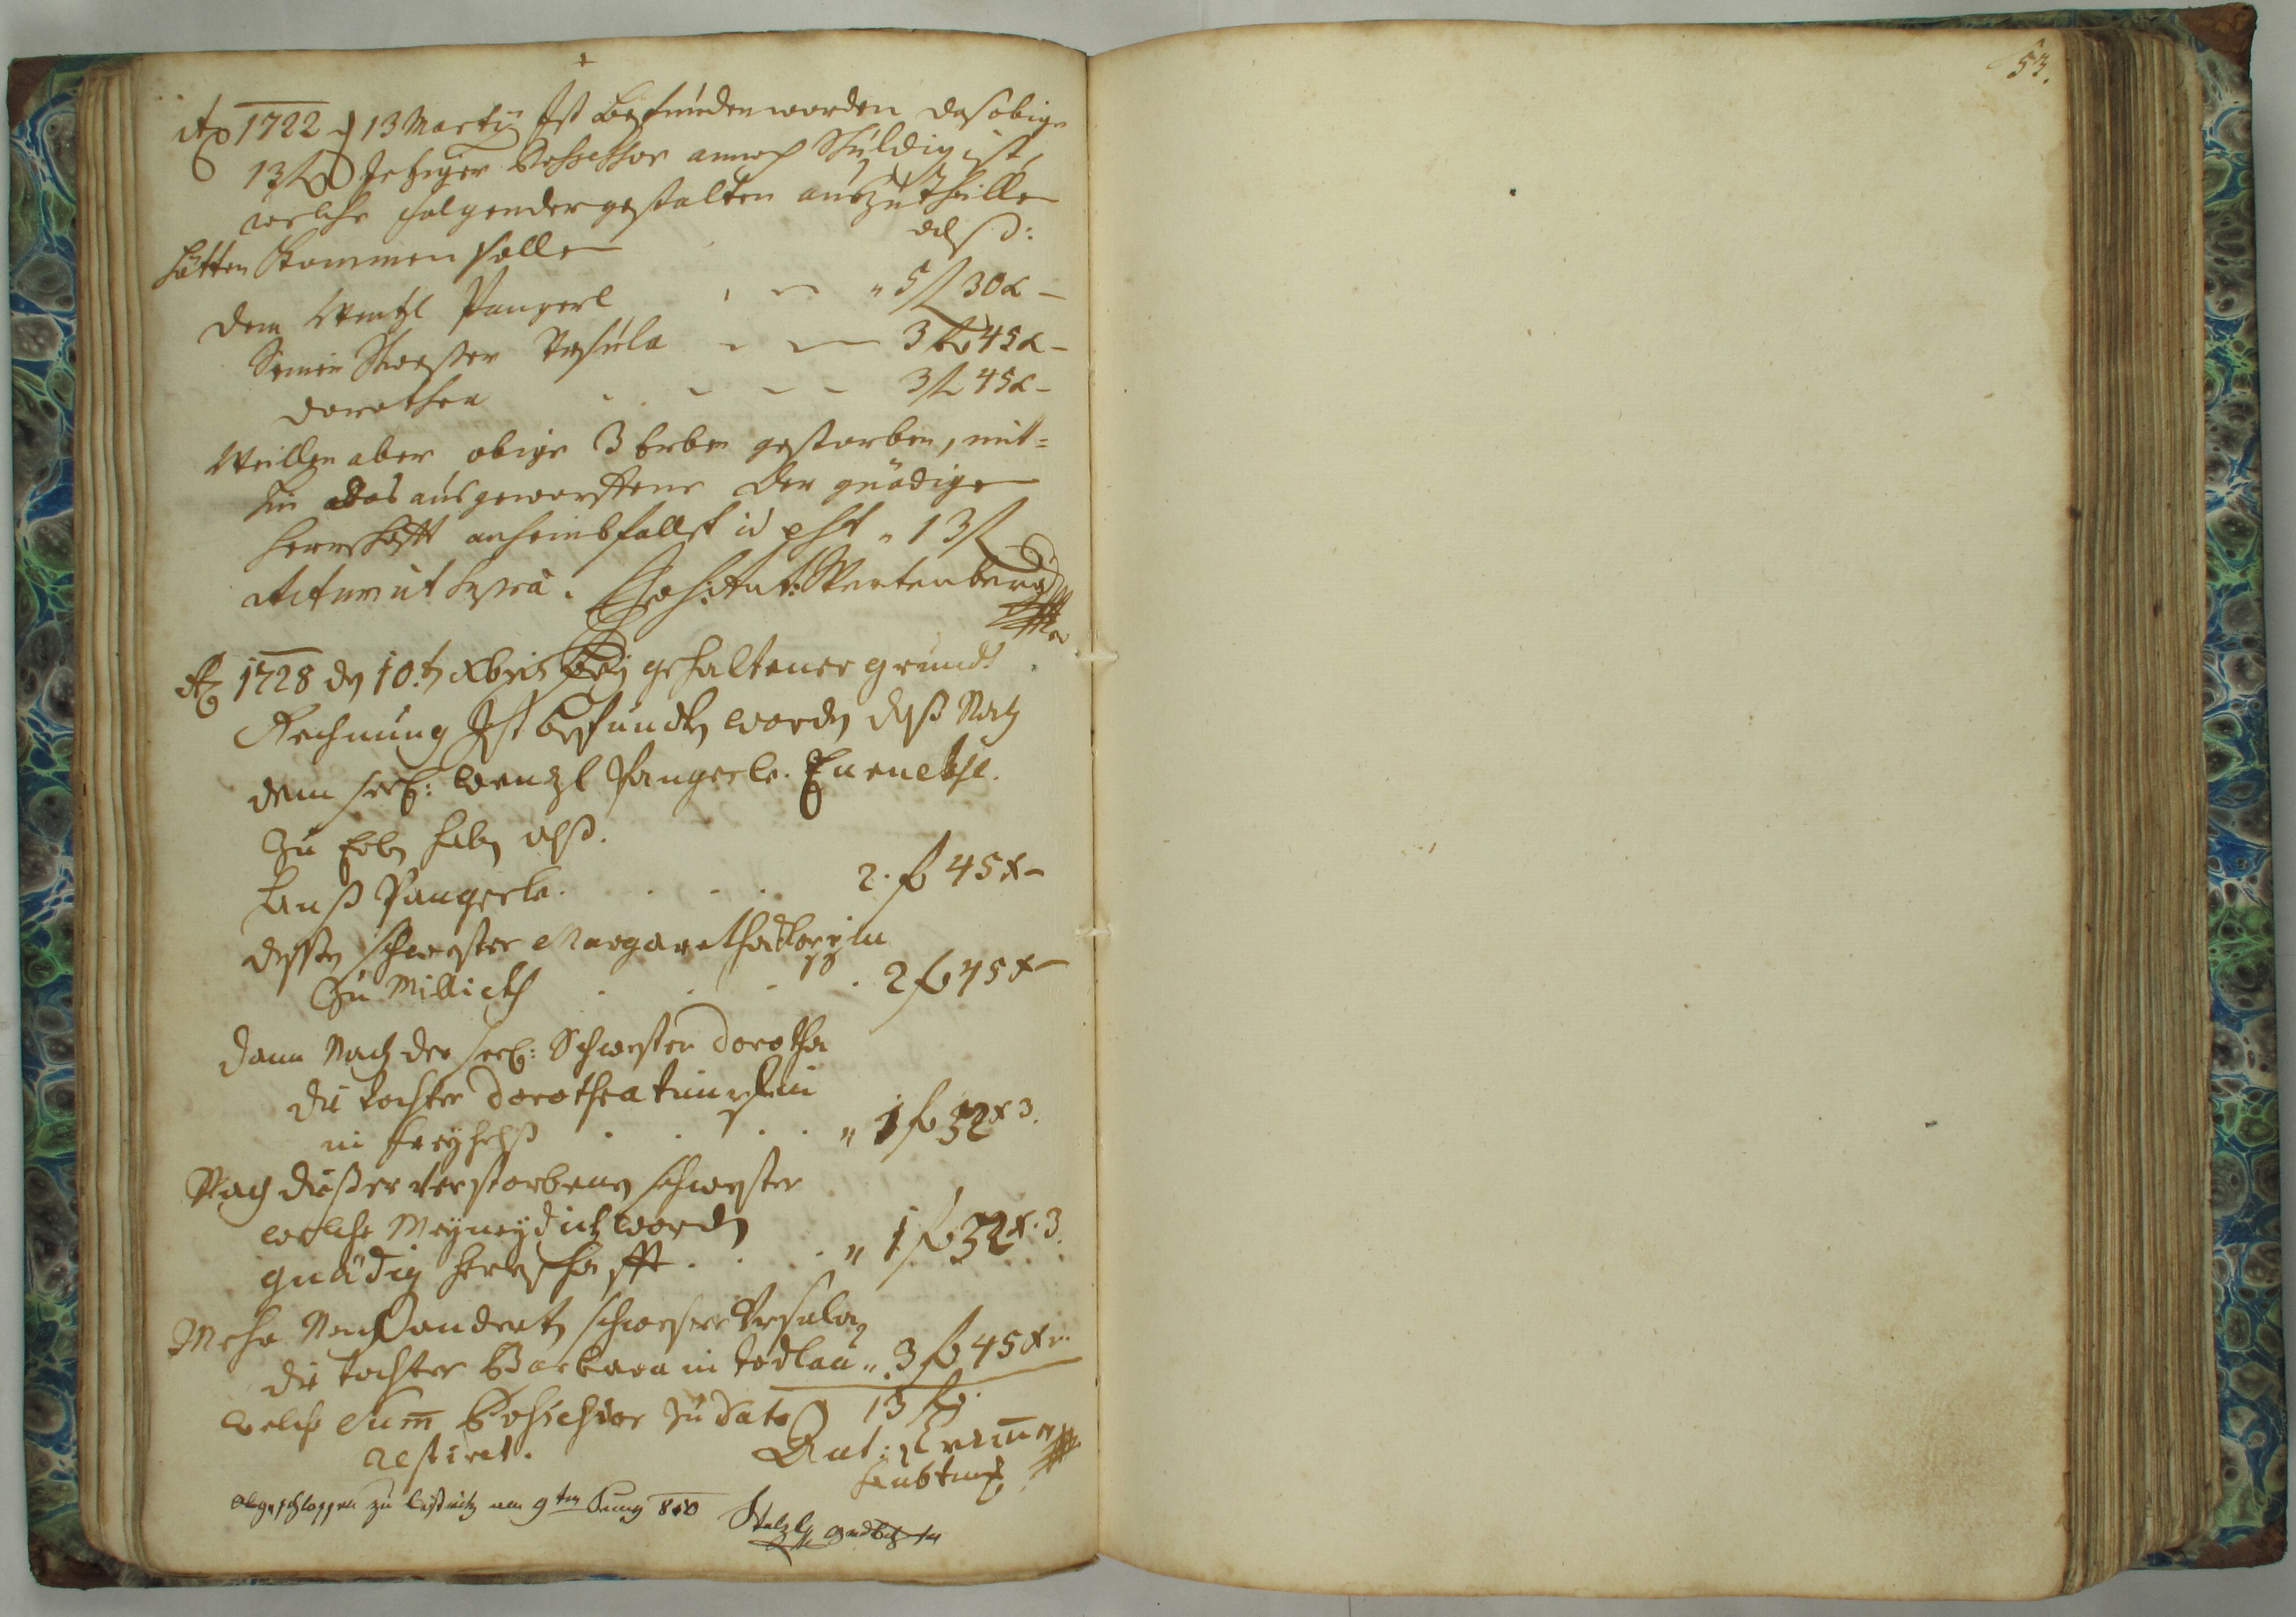 53.
Ao 1722 d 13 Martÿ Ist Befunden worden das obige
13 f Jetziger Possessor annoch Schuldig ist,
welche folgender gestalten auszutheillen
hätten kommen sollen alß:
Dem Wentzl Pangerl " 5 f 30 x –
Seiner Schwester Ursula 3 f 45 x –
Dorothea 3 f 45 x –
Weillen aber obige 3 Erben gestorben, mit-
hin das ausgeworffene der gnädigen
Herrschafft anheimbfallet id est " 13 f
Actum ut supra. Joh: Ant:
Ao 1728 den 10. t Xbris Beÿ gehaltener grundt
Rechnung Ist befunden worden daß Nach
dem seel: Wenzl Pangerle.
Zu Erben haben alß.
Pangerle. 2. f 45 x –
dessen Schwester Margaretha
Zu 2 f 45 x –
Dann Nach der seel: Schwester Dorothea
die tochter Dorothea
in " 1 f 52 x 3.
Nach dießer verstorbenen schwester
welche Meyneydich worden
gnädig herrschafft " 1 f 52 x. 3.
Mehr Nach anderten schwester Ursula
die tochter Barbara in " 3 f 45 x
13 f
welche Sum Possessor zu dato
restiret. Ant:
Haubtm
Abgeschlossen zu am 9ten Juny 810